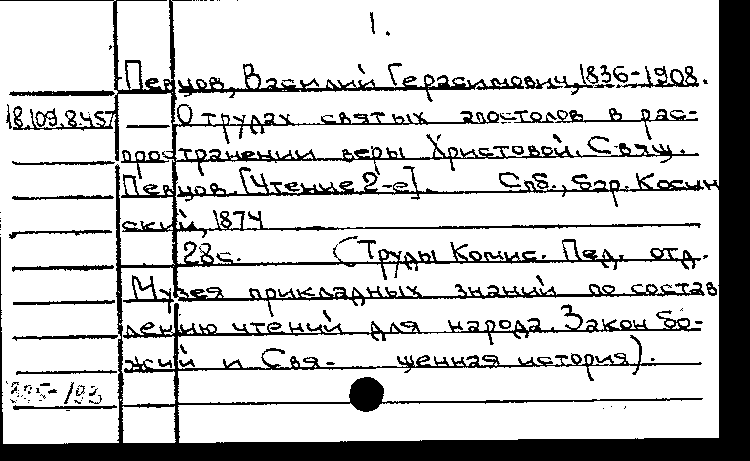 1.
Певцов, Василий Герасимович, 1836-1908.
18.109.8.457 О трудах святых апостолов в рас-
пространении веры Христовой. Свящ.
Певцов. [Чтение 2-е]. Спб., бар. Косин
ский, 1874
28с. (Труды Комис. Пед. отд.
Музея прикладных знаний по состав
лению чтений для народа. Закон бо-
жий и Свя- щенная история).